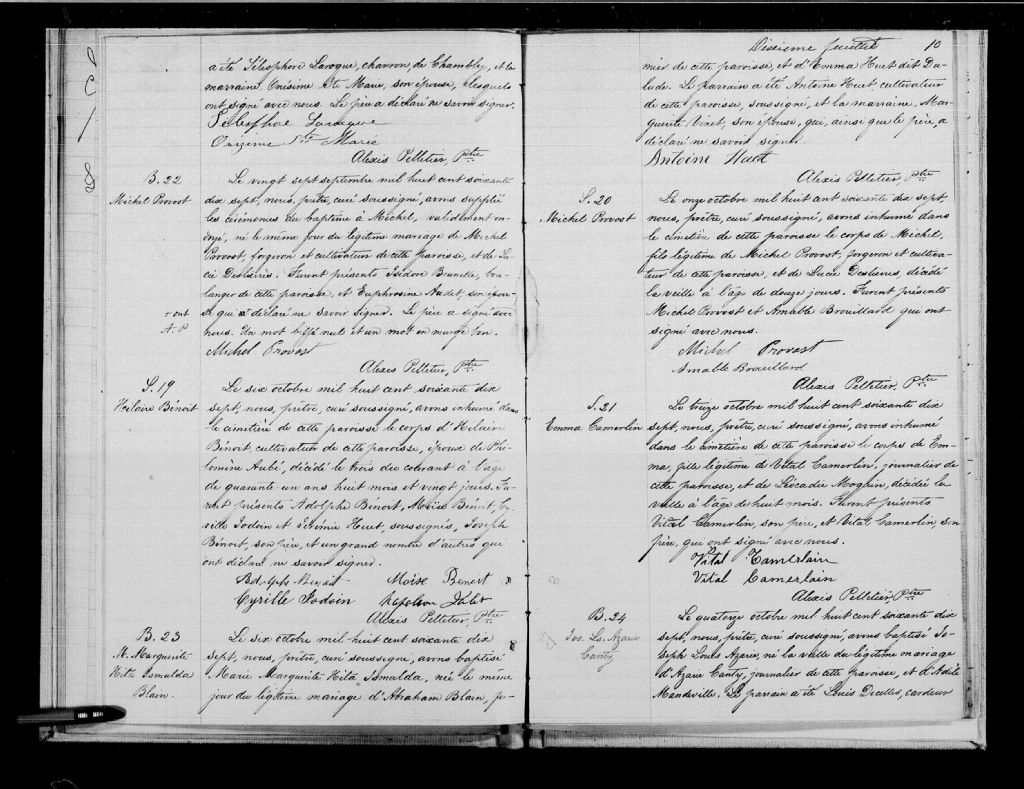 a été Télesphore Laroque, charron, de Chambly, et la
marraine Onésime Ste Marie, son épouse, lesquels
ont signé avec nous. Le père a déclaré ne savoir signer.
Télesphore Laroque
Onezime Ste Marie
Alexis Pelletier, Ptre
B. 22
Michel Provost
Le vingt sept septembre mil huit cent soixante
dix sept, nous, prêtre, curé soussigné, avons suppléé
les cérémonies du baptême à Michel, validement on-
doyé, né le même jour du légitime mariage de Michel
Provost, forgeron et cultivateur de cette paroisse, et de Lu-
cie Deslières. Furent présents Isidore Brunelle, bou-
langer de cette paroisse, et Euphrosine Audet, son épou-
r ont
A. P
se qui a déclaré ne savoir signer. Le père a signé avec
nous. Un mot biffé nul et un mot en marge bon.
Michel Provost
Alexis Pelletier, Ptre
S. 19
Hilaire Bénoit
Le six octobre mil huit cent soixante dix
sept, nous, prêtre, curé soussigné, avons inhumé dans
le cimetière de cette paroisse le corps d'Hilaire
Bénoit, cultivateur de cette paroisse, époux de Phi-
lomène Aubé, décédé le trois du courant à l'âge
de quarante un ans huit mois et vingt jours. Fu-
rent présents Adolphe Bénoit, Moïse Bénoit, Cy-
rille Jodoin et Jérémie Huet, soussignés, Joseph
Bénoit, son père, et un grand nombre d'autres qui
ont déclaré ne savoir signer.
Adolphe Benoit Moise Benoit
Cyrille Jodoin Napoléon
Alexis Pelletier, Ptre
B. 23
M. Marguerite
Hita Ismalda
Blain.
Le six octobre mil huit cent soixante dix
sept, nous, prêtre, curé soussigné, avons baptisé
Marie Marguerite Hita Ismalda, née le même
jour du légitime mariage d'Abraham Blain, fer-
Dixième feuillet 10
mier de cette paroisse, et d'Emma Huet dit Du-
lude. Le parrain a été Antoine Huet cultivateur
de cette paroisse, soussigné, et la marraine, Mar-
guerite Vinet, son épouse, qui, ainsi que le père, a
déclaré ne savoir signer.
Antoine Huet
Alexis Pelletier, Ptre
S. 20
Michel Provost
Le onze octobre mil huit cent soixante dix sept,
nous, prêtre, curé soussigné, avons inhumé dans
le cimetière de cette paroisse le corps de Michel,
fils légitime de Michel Provost, forgeron et cultiva-
teur de cette paroisse, et de Lucie Deslières, décédé
la veille à l'âge de douze jours. Furent présents
Michel Provost et Amable Brouillard qui ont
signé avec nous.
Michel Provost
Amable Brouillard
Alexis Pelletier, Ptre
S. 21
Emma Camerlin
Le treize octobre mil huit cent soixante dix
sept, nous, prêtre, curé soussigné, avons inhumé
dans le cimetière de cette paroisse le corps de Em-
ma, fille légitime de Vital Camerlin, journalier de
cette paroisse, et de Léocadie Moquin, décédée la
veille à l'âge de huit mois. Furent présents
Vital Camerlin, son père, et Vital Camerlin son
père, qui ont signé avec nous.
Vital Camerlain
Vital Camerlain
Alexis Pelletier, Ptre
B. 24
Jos. Ls. Azarie
Canty
Le quatorze octobre mil huit cent soixante dix
sept, nous, prêtre, curé soussigné, avons baptisé Jo-
seph Louis Azarie, né la veille du légitime mariage
d'Azarie Canty, journalier de cette paroisse, et d'Adèle
Mandeville. Le parrain a été Louis Decelles, cardeur